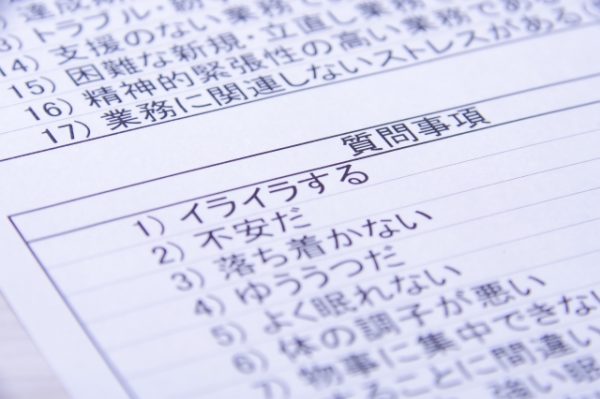 達成期
13) トラブル・紛
14) 支援のない業務で
15) 困難な新規・立直し業務
16) 精神的緊張性の高い業務であ
17) 業務に関連しないストレスがある(
質問事項
1) イライラする
2) 不安だ
3) 落ち着かない
4) ゆううつだ
5) よく眠れない
6) 体の調子が悪い
7) 物事に集中できない
することに間違い
強い眠